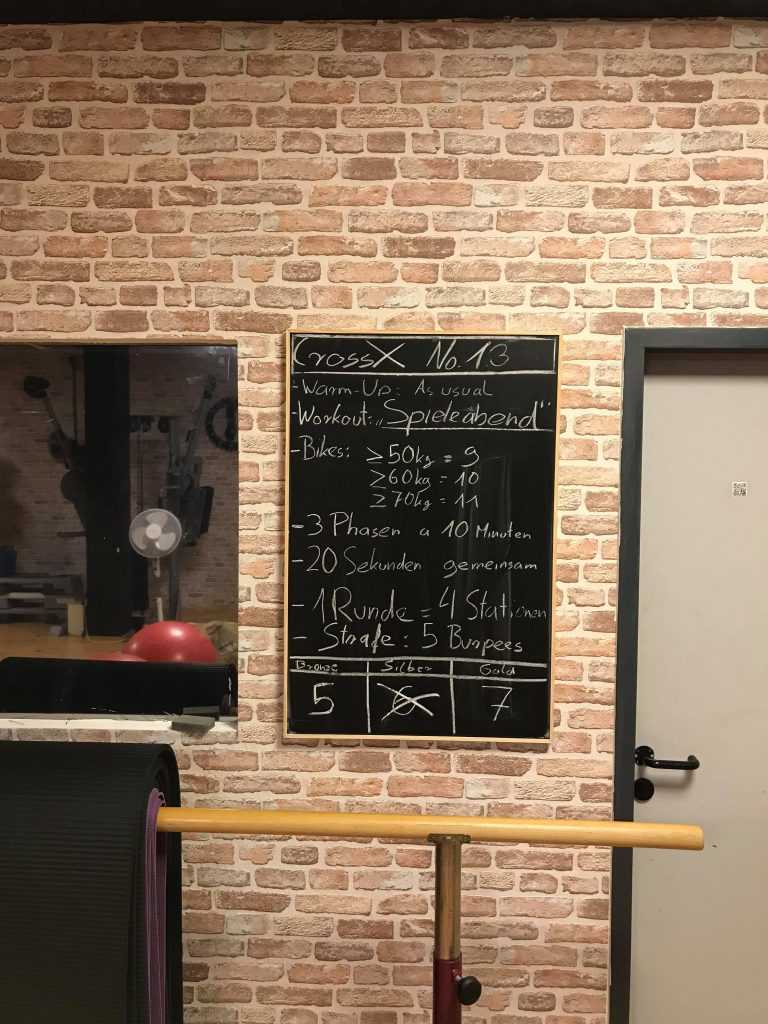 CrossX No. 13
- Warm-Up: As usual
- Workout: „Spieleabend"
- Bikes: ≥50kg = 9
≥60kg = 10
≥70kg = 11
- 3 Phasen a 10 Minuten
- 20 Sekunden gemeinsam
- 1 Runde = 4 Stationen
- Strafe: 5 Burpees
Bronze Silber Gold
5 6 7